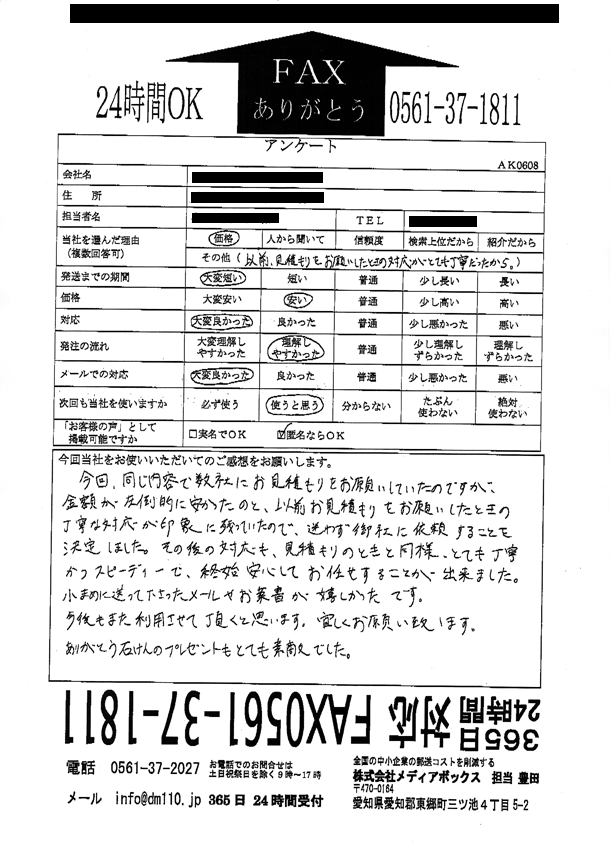 24時間OK
FAX
ありがとう
0561-37-1811
アンケート
AK0608
会社名
住　所
担当者名 TEL
当社を選んだ理由
(複数回答可)
価格 人から聞いて 信頼度 検索上位だから 紹介だから
その他(以前、見積もりをお願いしたときの対応がとても丁寧だったから。)
発送までの期間 大変短い 短い 普通 少し長い 長い
価格 大変安い 安い 普通 少し高い 高い
対応 大変良かった 良かった 普通 少し悪かった 悪い
発注の流れ 大変理解しやすかった 理解しやすかった 普通 少し理解しずらかった 理解しずらかった
メールでの対応 大変良かった 良かった 普通 少し悪かった 悪い
次回も当社を使いますか 必ず使う 使うと思う 分からない たぶん使わない 絶対使わない
「お客様の声」として
掲載可能ですか
□実名でOK ☑匿名ならOK
今回当社をお使いいただいてのご感想をお願いします。
今回、同じ内容で数社にお見積もりをお願いしていたのですが、
金額が圧倒的に安かったのと、以前お見積もりをお願いしたときの
丁寧な対応が印象に残っていたので、迷わず御社に依頼することを
決定しました。その後の対応も、見積もりのときと同様、とても丁寧
かつスピーディーで、終始安心してお任せすることが出来ました。
小まめに送って下さったメールやお葉書が嬉しかったです。
今後もまた利用させて頂くと思います。宜しくお願い致します。
ありがとう石けんのプレゼントもとても素敵でした。
365日
24時間
対応 FAX0561-37-1811
電話 0561-37-2027 お電話でのお問合せは
土日祝祭日を除く9時～17時
メール info@dm110.jp 365日 24時間受付
全国の中小企業の郵送コストを削減する
株式会社メディアボックス 担当 豊田
〒470-0164
愛知県愛知郡東郷町三ツ池4丁目5-2